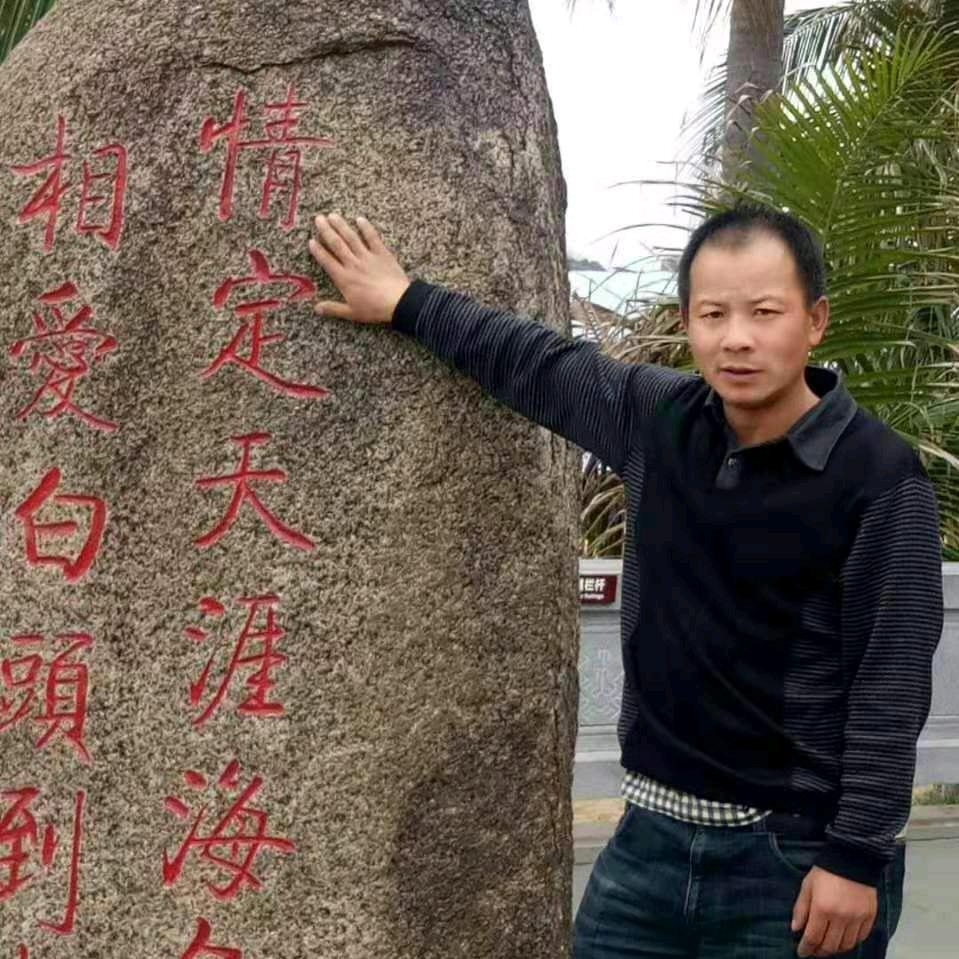 情定天涯海
相愛白頭到
栏杆